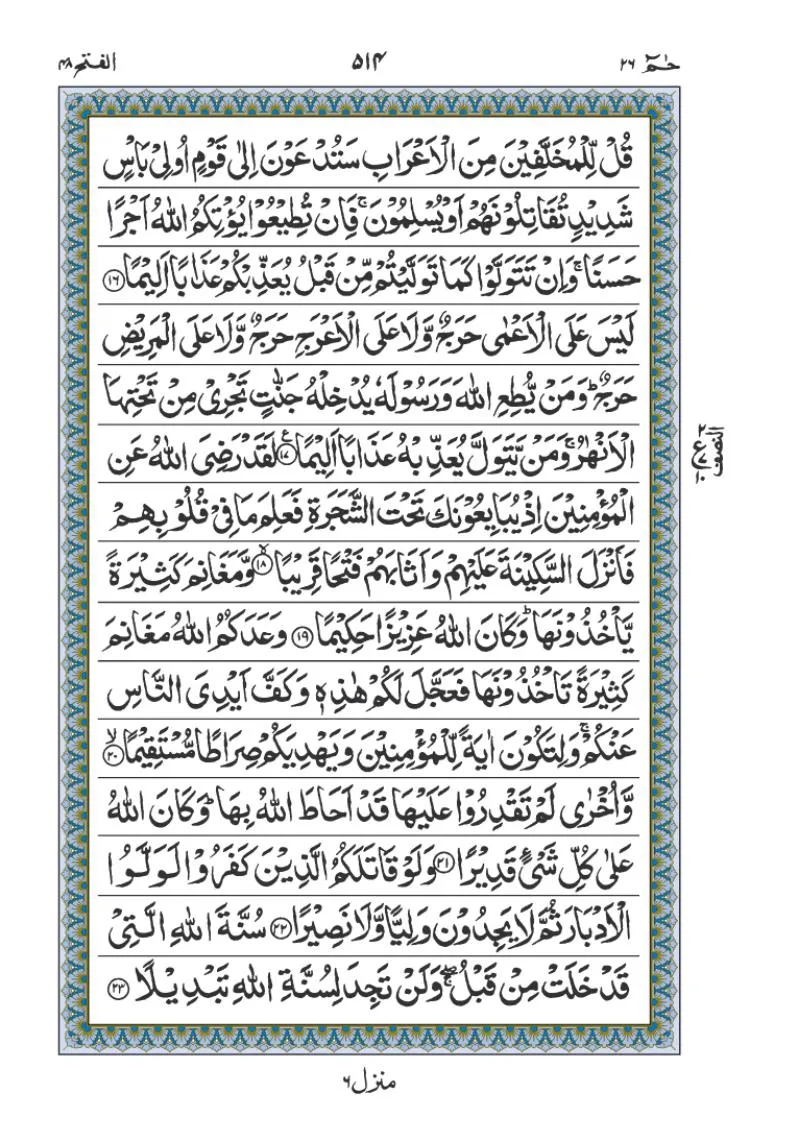 حٰمٓ ٢٦ ٥١٤ الفتح ٤٨
قُلْ لِّلْمُخَلَّفِيْنَ مِنَ الْاَعْرَابِ سَتُدْعَوْنَ اِلٰى قَوْمٍ اُولِىْ بَاْسٍ
شَدِيْدٍ تُقَاتِلُوْنَهُمْ اَوْ يُسْلِمُوْنَ ۚ فَاِنْ تُطِيْعُوْا يُؤْتِكُمُ اللّٰهُ اَجْرًا
حَسَنًا ۚ وَاِنْ تَتَوَلَّوْا كَمَا تَوَلَّيْتُمْ مِّنْ قَبْلُ يُعَذِّبْكُمْ عَذَابًا اَلِيْمًا ⁠١٦
لَيْسَ عَلَى الْاَعْمٰى حَرَجٌ وَّلَا عَلَى الْاَعْرَجِ حَرَجٌ وَّلَا عَلَى الْمَرِيْضِ
حَرَجٌ ؕ وَمَنْ يُّطِعِ اللّٰهَ وَرَسُوْلَهٗ يُدْخِلْهُ جَنّٰتٍ تَجْرِىْ مِنْ تَحْتِهَا
الْاَنْهٰرُ ۚ وَمَنْ يَّتَوَلَّ يُعَذِّبْهُ عَذَابًا اَلِيْمًا ١٧ ع لَقَدْ رَضِىَ اللّٰهُ عَنِ
الْمُؤْمِنِيْنَ اِذْ يُبَايِعُوْنَكَ تَحْتَ الشَّجَرَةِ فَعَلِمَ مَا فِىْ قُلُوْبِهِمْ
فَاَنْزَلَ السَّكِيْنَةَ عَلَيْهِمْ وَاَثَابَهُمْ فَتْحًا قَرِيْبًا ١٨ ۙ وَّمَغَانِمَ كَثِيْرَةً
يَّاْخُذُوْنَهَا ؕ وَكَانَ اللّٰهُ عَزِيْزًا حَكِيْمًا ١٩ وَعَدَكُمُ اللّٰهُ مَغَانِمَ
كَثِيْرَةً تَاْخُذُوْنَهَا فَعَجَّلَ لَكُمْ هٰذِهٖ وَكَفَّ اَيْدِىَ النَّاسِ
عَنْكُمْ ۚ وَلِتَكُوْنَ اٰيَةً لِّلْمُؤْمِنِيْنَ وَيَهْدِيَكُمْ صِرَاطًا مُّسْتَقِيْمًا ٢٠ ۙ
وَّاُخْرٰى لَمْ تَقْدِرُوْا عَلَيْهَا قَدْ اَحَاطَ اللّٰهُ بِهَا ؕ وَكَانَ اللّٰهُ
عَلٰى كُلِّ شَىْءٍ قَدِيْرًا ٢١ وَلَوْ قَاتَلَكُمُ الَّذِيْنَ كَفَرُوْا لَوَلَّوُا
الْاَدْبَارَ ثُمَّ لَا يَجِدُوْنَ وَلِيًّا وَّلَا نَصِيْرًا ٢٢ سُنَّةَ اللّٰهِ الَّتِىْ
قَدْ خَلَتْ مِنْ قَبْلُ ۖۚ وَلَنْ تَجِدَ لِسُنَّةِ اللّٰهِ تَبْدِيْلًا ٢٣
النصف
٢ ع ٧ ١٠
منزل ٦